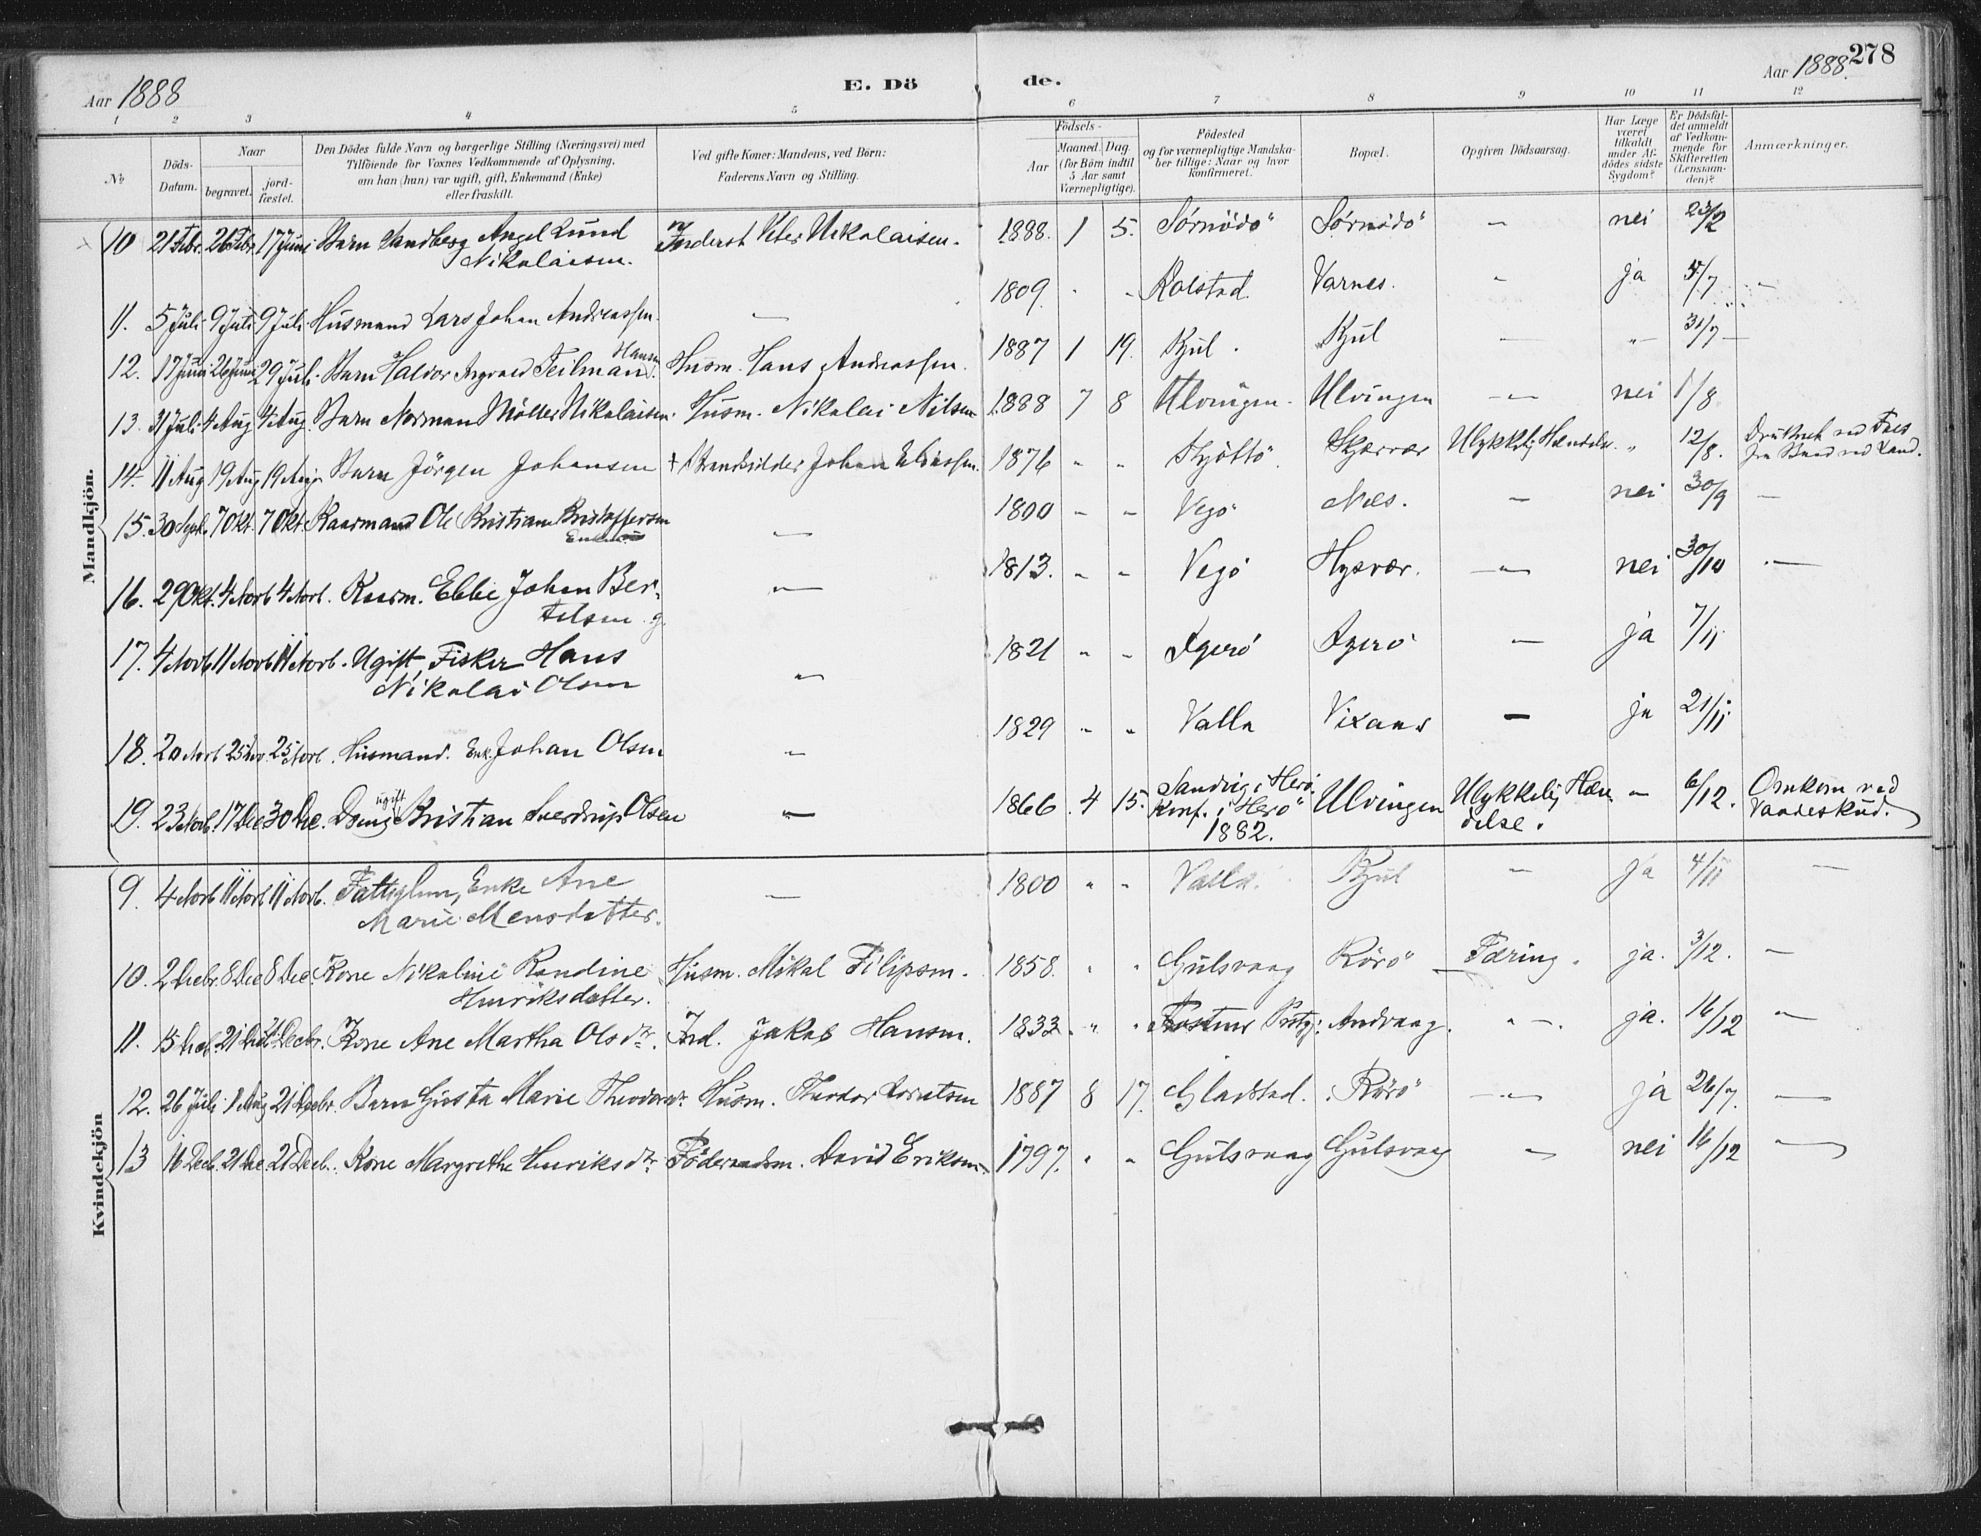 Aar 1888
E. Dö
de.
Aar 1888.
278
1 2 3 4 5 6 7 8 9 10 11 12
No
Döds-
Datum.
Naar
begravet.
jord-
fæstet.
Den Dödes fulde Navn og borgerlige Stilling (Næringsvei) med
Tilföiende for Voxnes Vedkommende af Oplysning,
om han (hun) var ugift, gift, Enkemand (Enke)
eller fraskilt.
Ved gifte Koner: Mandens, ved Börn:
Faderens Navn og Stilling.
Födsels-
Aar
Maaned. Dag.
(for Börn indtil
5 Aar samt
Værnepligtige).
Födested
og for værnepligtige Mandska-
ber tillige: Naar og hvor
konfirmeret.
Bopæl.
Opgiven Dödsaarsag.
Har Læge
været
tilkaldt
under Af-
dödes sidste
Sygdom?
Er Dödsfal-
det anmeldt
af Vedkom-
mende for
Skifteretten
(Lensman-
den)?
Anmærkninger.
Mandkjön.
10 21 Febr. 26 Febr. 17 Juni Barn Sandberg Angel Lund Inderst Peter Nikolaisen. 1888. 1 5. Sørnödö Sørnödö - nei 23/2
Nikolaisen.
11. 5 Juli 9 Juli 9 Juli Husmand Lars Johan Andreassen. - 1809 " " Rolstad. Varnes. - ja 5/7 -
12. 17 Juni 26 Juni 29 Juli Barn Haldor Ingvald Teilman Hansen. Husm. Hans Andreassen. 1887 1 19. Kjul. Kjul - " 31/7 -
13. 31 Juli 4 Aug 4 Aug. Barn Norman Möller Nikolaisen. Husm. Nikolai Nilsen 1888 7 8 Ulvingen. Ulvingen - nei 1/8
14. 11 Aug 19 Aug 19 Aug Barn Jörgen Johansen + Strandsidder Johan Eliassen. 1876 " " Tjöttö. Skjærvær Ulykkelig Hændelse. " 12/8. Druknet ved Fald
fra Baad ved Land.
15. 30 Sept. 7 Okt. 7 Okt. Kaarmand Ole Kristian Kristoffersen - 1800 " " Vegö Næs. - nei 30/9 -
Enkem.
16. 29 Okt. 4 Novb 4 Novb. Kaarm. Ebbe Johan Ber- - 1813. " " Vegö Hysvær. - nei 30/10 -
telsen g.
17. 4 Novb 11 Novb 11 Novb. Ugift, Fisker Hans 1821 " " Igerö Igerö - ja 7/11
Nikolai Olsen "
18. 20 Novb 25 Nov. 25 Novb. Husmand. Enk. Johan Olsen " 1829 " " Valla Vixaas - ja 21/11
19. 23 Novb. 17 Dec 30 Dec. Dreng ugift Kristian Sverdrup Olsen - 1866. 4 15. Sandvig i Herö. Ulvingen Ulykkelig Hæn- - 6/12. Omkom ved
Konf. i Herö delse. Vaadeskud.
1882.
Kvindekjön
9. 4 Novb 11 Novb. 11 Novb. Fattiglem, Enke Ane - 1800 " " Valla. Kjul - ja 4/11 -
Marie Mensdatter.
10. 2 Decbr. 8 Dec 8 Dec. Kone Nikoline Randine Husm. Mikal Filipsen. 1858. " " Gulsvaag Rörö Tæring. ja. 3/12. -
Henriksdatter.
11. 15 Decb. 21 Dec. 21 Decbr. Kone Ane Martha Olsdtr. Ind. Jakob Hansen. 1833. " " Fosnes Prstgj: Andvaag. " ja. 16/12 -
12. 26 Juli 1 Aug 21 Decbr. Barn Gusta Marie Theodordtr. Husm. Theodor Lorntsen 1887 8 17. Gladstad. Rörö - ja 26/7. -
13 16 Decb. 21 Dec. 21 Decb. Kone Margrethe Henriksdtr. Föderaadsm. David Eriksen. 1797. " " Gulsvaag Gulsvaag - nei 16/12 -